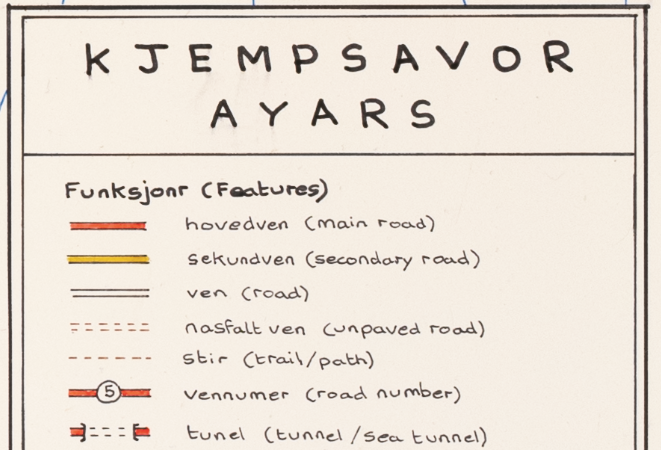 KJEMPSAVOR
AYARS
Funksjonr (Features)
hovedven (main road)
sekundven (secondary road)
ven (road)
nasfalt ven (unpaved road)
stir (trail/path)
5 vennumer (road number)
tunel (tunnel/sea tunnel)